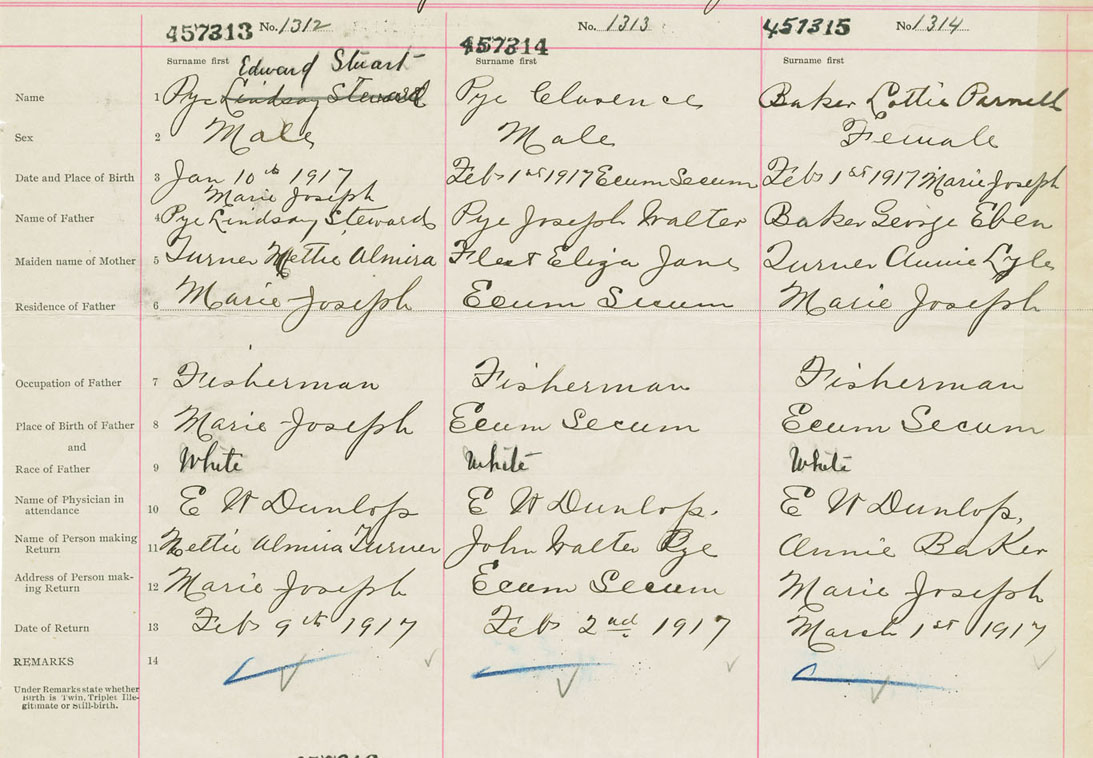 457313 No. 1312
457314 No. 1313
457315 No. 1314
Surname first Edward Stuart
Surname first
Surname first
Name 1 Pye Lindsay Steward Pye Clarence Baker Lottie Parnell
Sex 2 Male Male Female
Date and Place of Birth 3 Jan 10th 1917 Marie Joseph Feb 1st 1917 Ecum Secum Feb 1st 1917 Marie Joseph
Name of Father 4 Pye Lindsay Steward Pye Joseph Walter Baker George Eben
Maiden name of Mother 5 Turner Nettie Almira Fleet Eliza Jane Turner Annie Lyle
Residence of Father 6 Marie Joseph Ecum Secum Marie Joseph
Occupation of Father 7 Fisherman Fisherman Fisherman
Place of Birth of Father 8 Marie Joseph Ecum Secum Ecum Secum
and
Race of Father 9 White White White
Name of Physician in
attendance 10 E W Dunlop E W Dunlop. E W Dunlop.
Name of Person making
Return 11 Nettie Almira Turner John Walter Pye Annie Baker
Address of Person mak-
ing Return 12 Marie Joseph Ecum Secum Marie Joseph
Date of Return 13 Feb 9th 1917 Feb 2nd 1917 March 1st 1917
REMARKS 14
Under Remarks state whether
Birth is Twin, Triplet Ille-
gitimate or Still-birth.